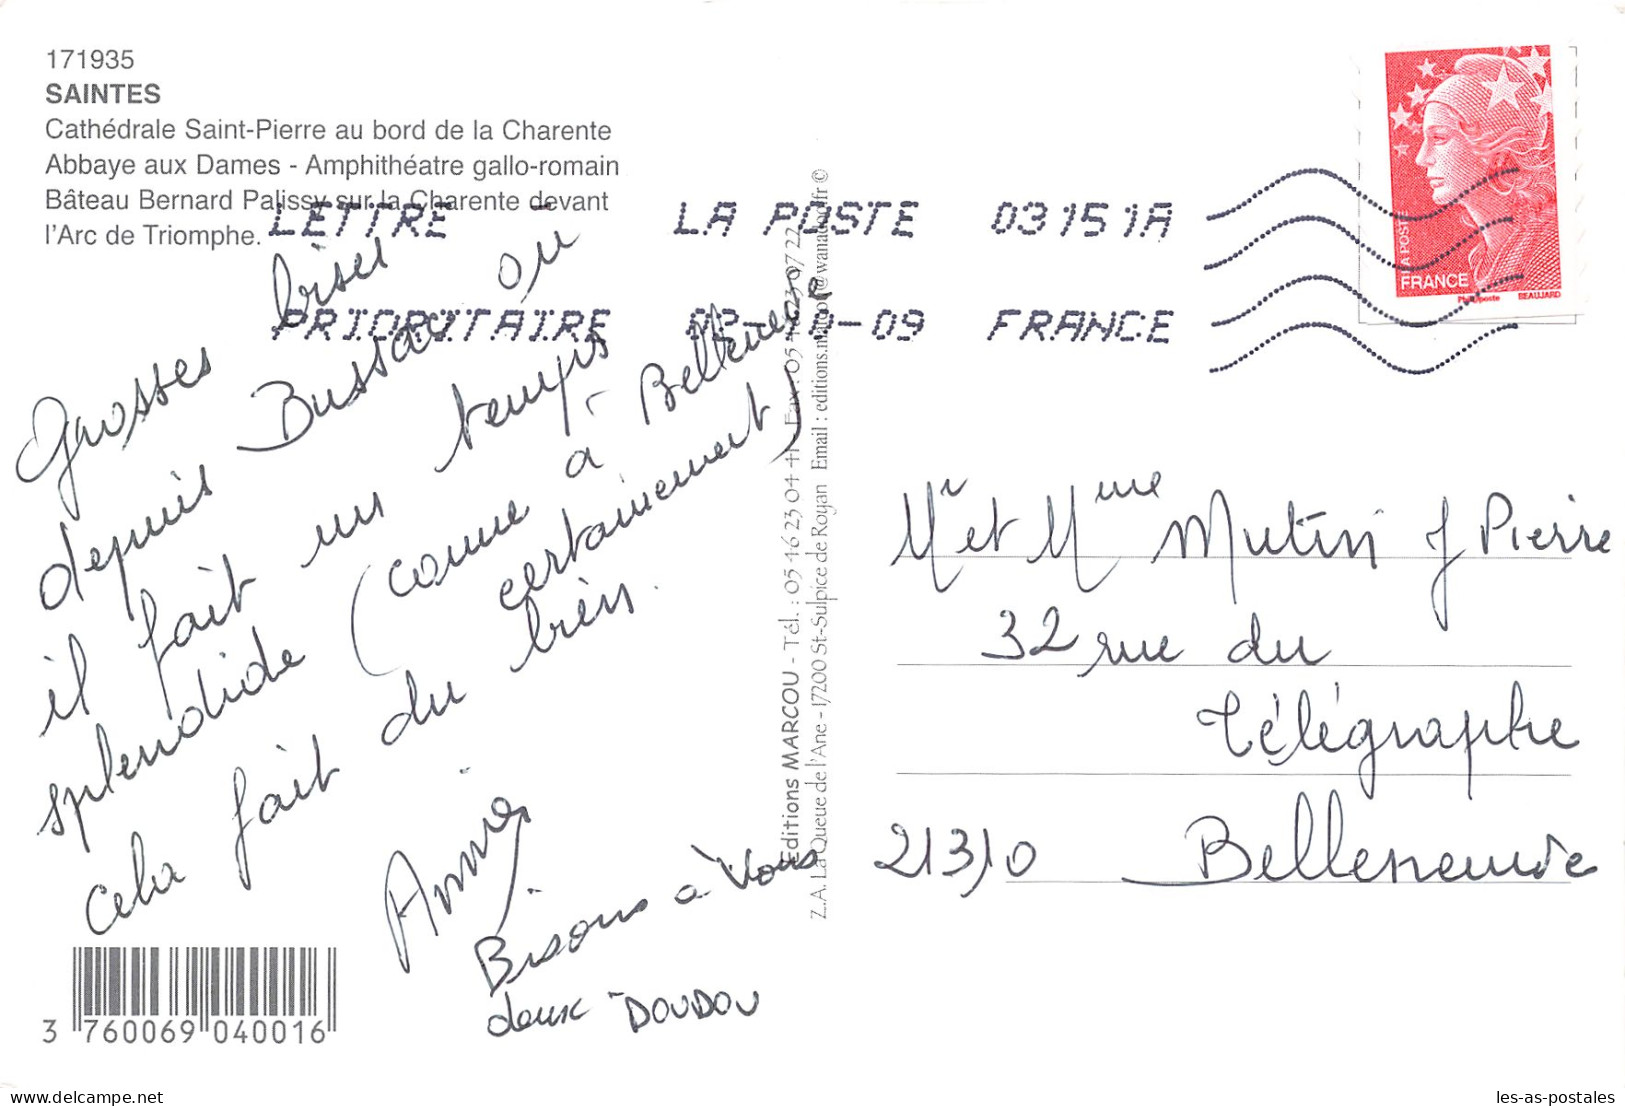 171935
SAINTES
Cathédrale Saint-Pierre au bord de la Charente
Abbaye aux Dames - Amphithéatre gallo-romain
Bâteau Bernard Palissy sur la Charente devant
l'Arc de Triomphe.
LETTRE LA POSTE 03151A
PRIORITAIRE -09 FRANCE
LA POSTE
FRANCE
Phil@poste BEAUJARD
Grosses bises
depuis Bussac où
il fait un temps
splendide (comme à Belleneuve
certainement)
cela fait du bien.
Annie
Bisous à vous
deux DOUDOU
Editions MARCOU - Tél. : 05 46 23 04 41 - Fax : 05 46 23 07 22
Z.A. La Queue de l'Ane - 17200 St-Sulpice de Royan Email : editions.marcou@wanadoo.fr ©
Mr et Mme Mutin J Pierre
32 rue du
Télégraphe
21310 Belleneuve
3 760069 040016
les-as-postales